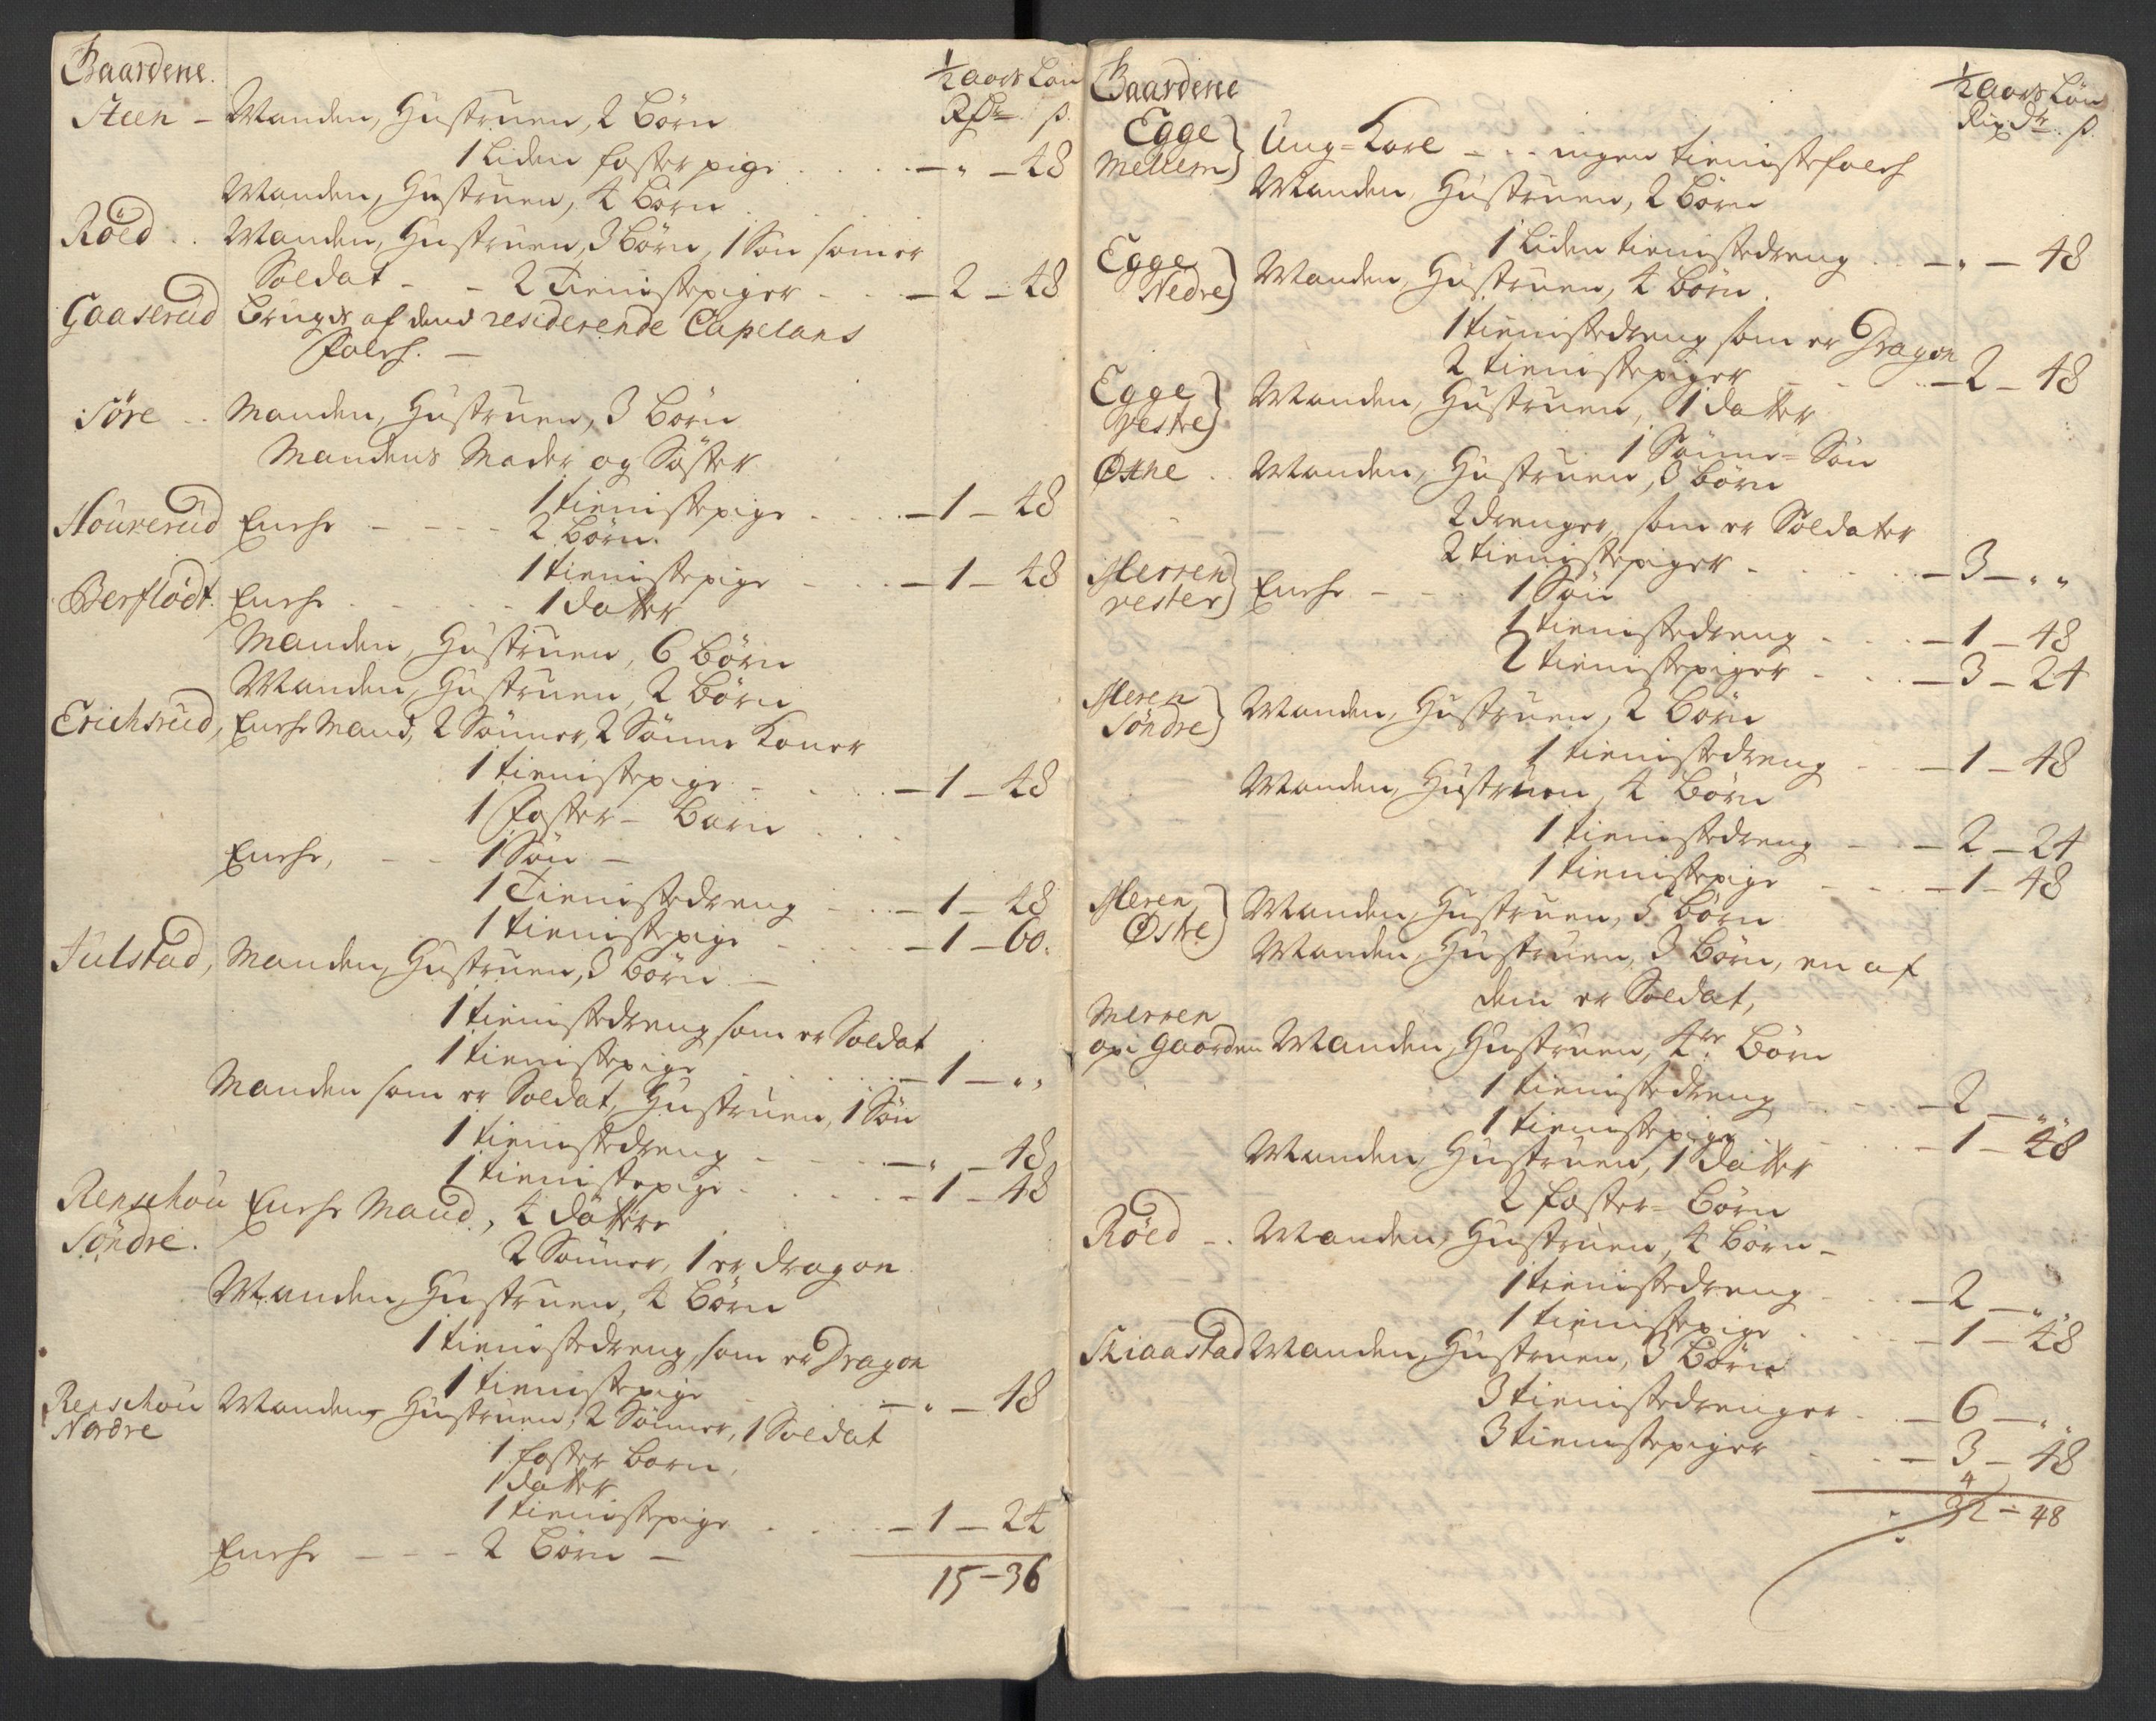 Gaardene. ½ Aars Løn
Steen - Manden, Hustruen, 2 Börn Rdr. ß.
1 Liden foster pige . . . . — " — 48
Manden, Hustruen, 4 Börn
Röed . . Manden, Hustruen, 3 Börn, 1 Søn som er
Soldat - - 2 Tienistepiger - . . — 2 — 48
Gaaserud Bruges af dend residerende Capelans
Folch. —
Söre . . Manden, Hustruen, 3 Börn
Mandens Moder og Söster
1 tienistepige . . . — 1 — 48
Houverud Enche - - - - 2 Börn.
1 tienistepige . . . — 1 — 48
Berflödt. Enche . - - - - 1 datter
Manden, Hustruen, 6 Börn
Manden, Hustruen, 2 Börn
Erichsrud, Enche Mand, 2 Sönner, 2 Sönne Koner
1 tienistepige - . . . — 1 — 48
1 Foster - Barn . . .
Enche, - - 1 Sön —
1 Tienistedreng - . . — 1 — 48
1 tienistepige - . . . — 1 — 60.
Julstad, Manden, Hustruen, 3 Börn —
1 tienistedreng som er Soldat
1 tienistepige . . . . — 1 — " "
Manden som er Soldat, Hustruen, 1 Sön
1 tienistedreng - - - — " — 48
1 tienistepige . . . . — 1 — 48
Renschou Enche Mand, 4 döttre
Söndre. 2 Sönner, 1 er dragon
Manden, Hustruen, 4 Börn
1 tienistedreng, som er Dragon
1 tienistepige - . . . — " — 48
Renschou Manden, Hustruen, 2 Sönner, 1 Soldat
Nordre 1 foster barn,
1 datter
1 tienistepige . . . . — 1 — 24
Enche - - - 2 Börn —
15 — 36
Gaardene ½ Aars Lön
Rixdr. ß.
Egge Mellem} Ung = Karl - . - ingen tienistefolch
Manden, Hustruen, 2 Börn
1 Liden tienistedreng . . — " — 48
Egge Nedre} Manden, Hustruen, 4 Börn.
1 tienistedreng som er Dragon
2 tienistepiger - - . . — 2 — 48
Egge vestre} Manden, Hustruen, 1 datter
1 Sönne = Sön
Østne . . Manden, Hustruen, 3 börn
2 drenger, som er Soldater
2 tienistepiger - . . . . — 3 — " "
Merren vester} Enche - - - 1 Sön
1 tienistedreng - . . . — 1 — 48
2 tienistepiger . . . — 3 — 24
Meren Söndre} Manden, Hustruen, 2 Börn
1 tienistedreng - . . — 1 — 48
Manden, Hustruen, 4 Börn
1 tienistedreng - . . — 2 — 24
1 tienistepige - . . — 1 — 48
Meren Østre} Manden, Hustruen, 5 Börn
Manden, Hustruen, 3 Börn, en af
dem er Soldat,
Merren
opi Gaorden Manden, Hustruen, 4re Börn
1 tienistedreng - . - — 2 — " "
1 tienistepige . . . — 1 — 48
Manden, Hustruen, 1 datter
2 foster = Börn
Röed - . Manden, Hustruen, 4 Börn -
1 tienistedreng - . . — 2 — " "
1 tienistepige . . . — 1 — 48
Skiaastad Manden, Hustruen, 3 Börn
3 tienistedrenger . . — 6 — " "
3 tienistepiger . . . — 3 — 48
32 — 48